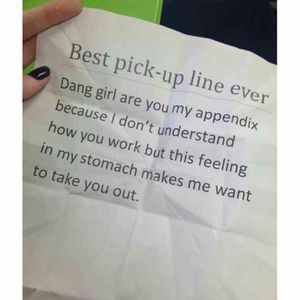 Best pick-up line ever
Dang girl are you my appendix
because I don't understand
how you work but this feeling
in my stomach makes me want
to take you out.